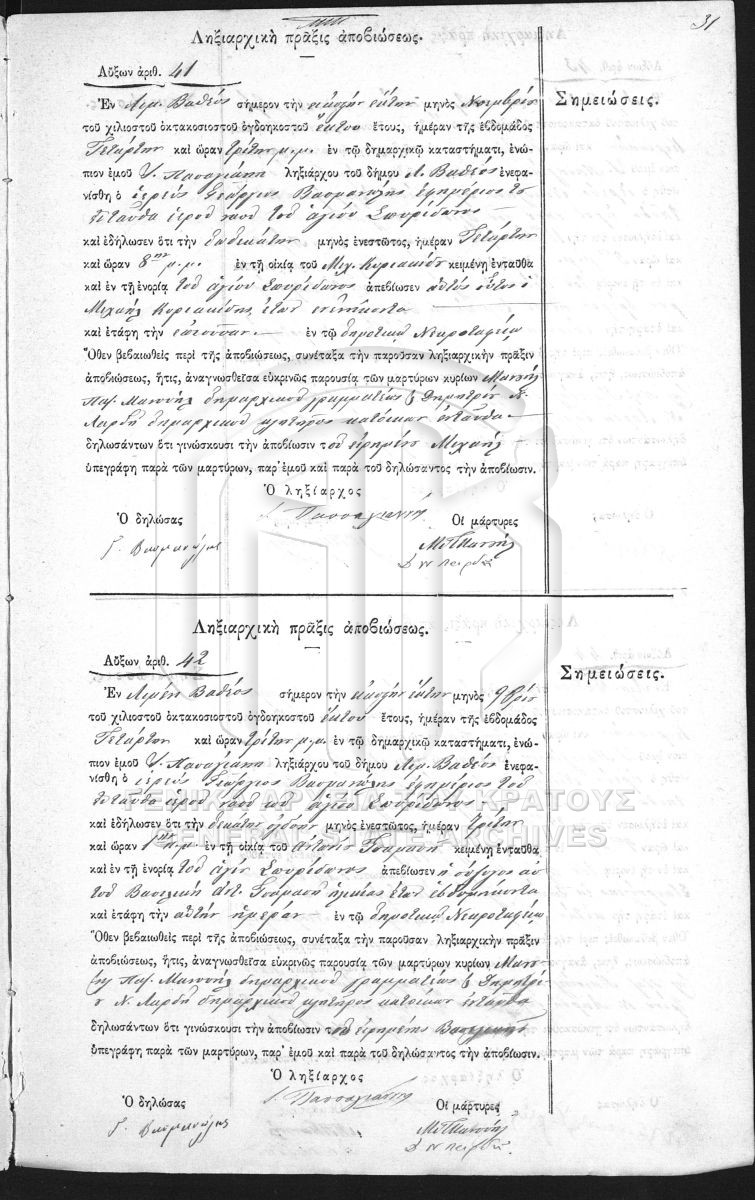 31
Ληξιαρχικὴ πρᾶξις ἀποβιώσεως.
Αὔξων ἀριθ. 41
Σημειώσεις.
Ἐν Λιμ. Βαθέος σήμερον τὴν εἰκοστὴν ἕκτην μηνὸς Νοεμβρίου
τοῦ χιλιοστοῦ ὀκτακοσιοστοῦ ὀγδοηκοστοῦ ἕκτου ἔτους, ἡμέραν τῆς ἑβδομάδος
Τετάρτην καὶ ὥραν τρίτην μ.μ. ἐν τῷ δημαρχικῷ καταστήματι, ἐνώ-
πιον ἐμοῦ ληξιάρχου τοῦ δήμου Λ. Βαθέος ἐνεφα-
νίσθη ὁ ἱερεὺς Γεώργιος ἐφημέριος τοῦ
ἐνταῦθα ἱεροῦ ναοῦ τοῦ ἁγίου Σπυρίδωνος
καὶ ἐδήλωσεν ὅτι τὴν μηνὸς ἐνεστῶτος, ἡμέραν Τετάρτην
καὶ ὥραν 8ην μ.μ. ἐν τῇ οἰκίᾳ τοῦ Μιχ. Κυριακίδου κειμένῃ ἐνταῦθα
καὶ ἐν τῇ ἐνορίᾳ τοῦ ἁγίου Σπυρίδωνος ἀπεβίωσεν αὐτὸς οὗτος ὁ
Μιχαὴλ Κυριακίδης ἐτῶν ἐνενήκοντα
καὶ ἐτάφη τὴν ἐπιοῦσαν ἐν τῷ δημοτικῷ Νεκροταφείῳ
Ὅθεν βεβαιωθεὶς περὶ τῆς ἀποβιώσεως, συνέταξα τὴν παροῦσαν ληξιαρχικὴν πρᾶξιν
ἀποβιώσεως, ἥτις, ἀναγνωσθεῖσα εὐκρινῶς παρουσίᾳ τῶν μαρτύρων κυρίων
δημαρχικοῦ γραμματέως & Δημητρίου Ν.
δημαρχικοῦ κλητῆρος κατοίκων ἐνταῦθα
δηλωσάντων ὅτι γινώσκουσι τὴν ἀποβίωσιν τοῦ εἰρημένου Μιχαὴλ
ὑπεγράφη παρὰ τῶν μαρτύρων, παρ' ἐμοῦ καὶ παρὰ τοῦ δηλώσαντος τὴν ἀποβίωσιν.
Ὁ ληξίαρχος
Ὁ δηλώσας
Οἱ μάρτυρες
Ληξιαρχικὴ πρᾶξις ἀποβιώσεως.
Αὔξων ἀριθ. 42
Σημειώσεις.
Ἐν Λιμένι Βαθέος σήμερον τὴν εἰκοστὴν ἕκτην μηνὸς 9βρίου
τοῦ χιλιοστοῦ ὀκτακοσιοστοῦ ὀγδοηκοστοῦ ἕκτου ἔτους, ἡμέραν τῆς ἑβδομάδος
Τετάρτην καὶ ὥραν τρίτην μ.μ. ἐν τῷ δημαρχικῷ καταστήματι, ἐνώ-
πιον ἐμοῦ ληξιάρχου τοῦ δήμου Λιμ. Βαθέος ἐνεφα-
νίσθη ὁ ἱερεὺς Γεώργιος ἐφημέριος τοῦ
ἐνταῦθα ἱεροῦ ναοῦ τοῦ ἁγίου Σπυρίδωνος
ΓΕΝΙΚΑ ΑΡΧΕΙΑ ΤΟΥ ΚΡΑΤΟΥΣ
GENERAL STATE ARCHIVES
καὶ ἐδήλωσεν ὅτι τὴν δεκάτην ὀγδόην μηνὸς ἐνεστῶτος, ἡμέραν Τρίτην
καὶ ὥραν ἐν τῇ οἰκίᾳ τοῦ κειμένῃ ἐνταῦθα
καὶ ἐν τῇ ἐνορίᾳ τοῦ ἁγίου Σπυρίδωνος ἀπεβίωσεν ἡ σύζυγος αὐ-
τοῦ Βασιλικὴ ἡλικίας ἐτῶν ἑβδομήκοντα
καὶ ἐτάφη τὴν αὐτὴν ἡμέραν ἐν τῷ δημοτικῷ Νεκροταφείῳ
Ὅθεν βεβαιωθεὶς περὶ τῆς ἀποβιώσεως, συνέταξα τὴν παροῦσαν ληξιαρχικὴν πρᾶξιν
ἀποβιώσεως, ἥτις, ἀναγνωσθεῖσα εὐκρινῶς παρουσίᾳ τῶν μαρτύρων κυρίων
δημαρχικοῦ γραμματέως & Δημητρί-
ου Ν. δημαρχικοῦ κλητῆρος κατοίκων ἐνταῦθα
δηλωσάντων ὅτι γινώσκουσι τὴν ἀποβίωσιν τῆς εἰρημένης Βασιλικῆς
ὑπεγράφη παρὰ τῶν μαρτύρων, παρ' ἐμοῦ καὶ παρὰ τοῦ δηλώσαντος τὴν ἀποβίωσιν.
Ὁ ληξίαρχος
Ὁ δηλώσας
Οἱ μάρτυρες